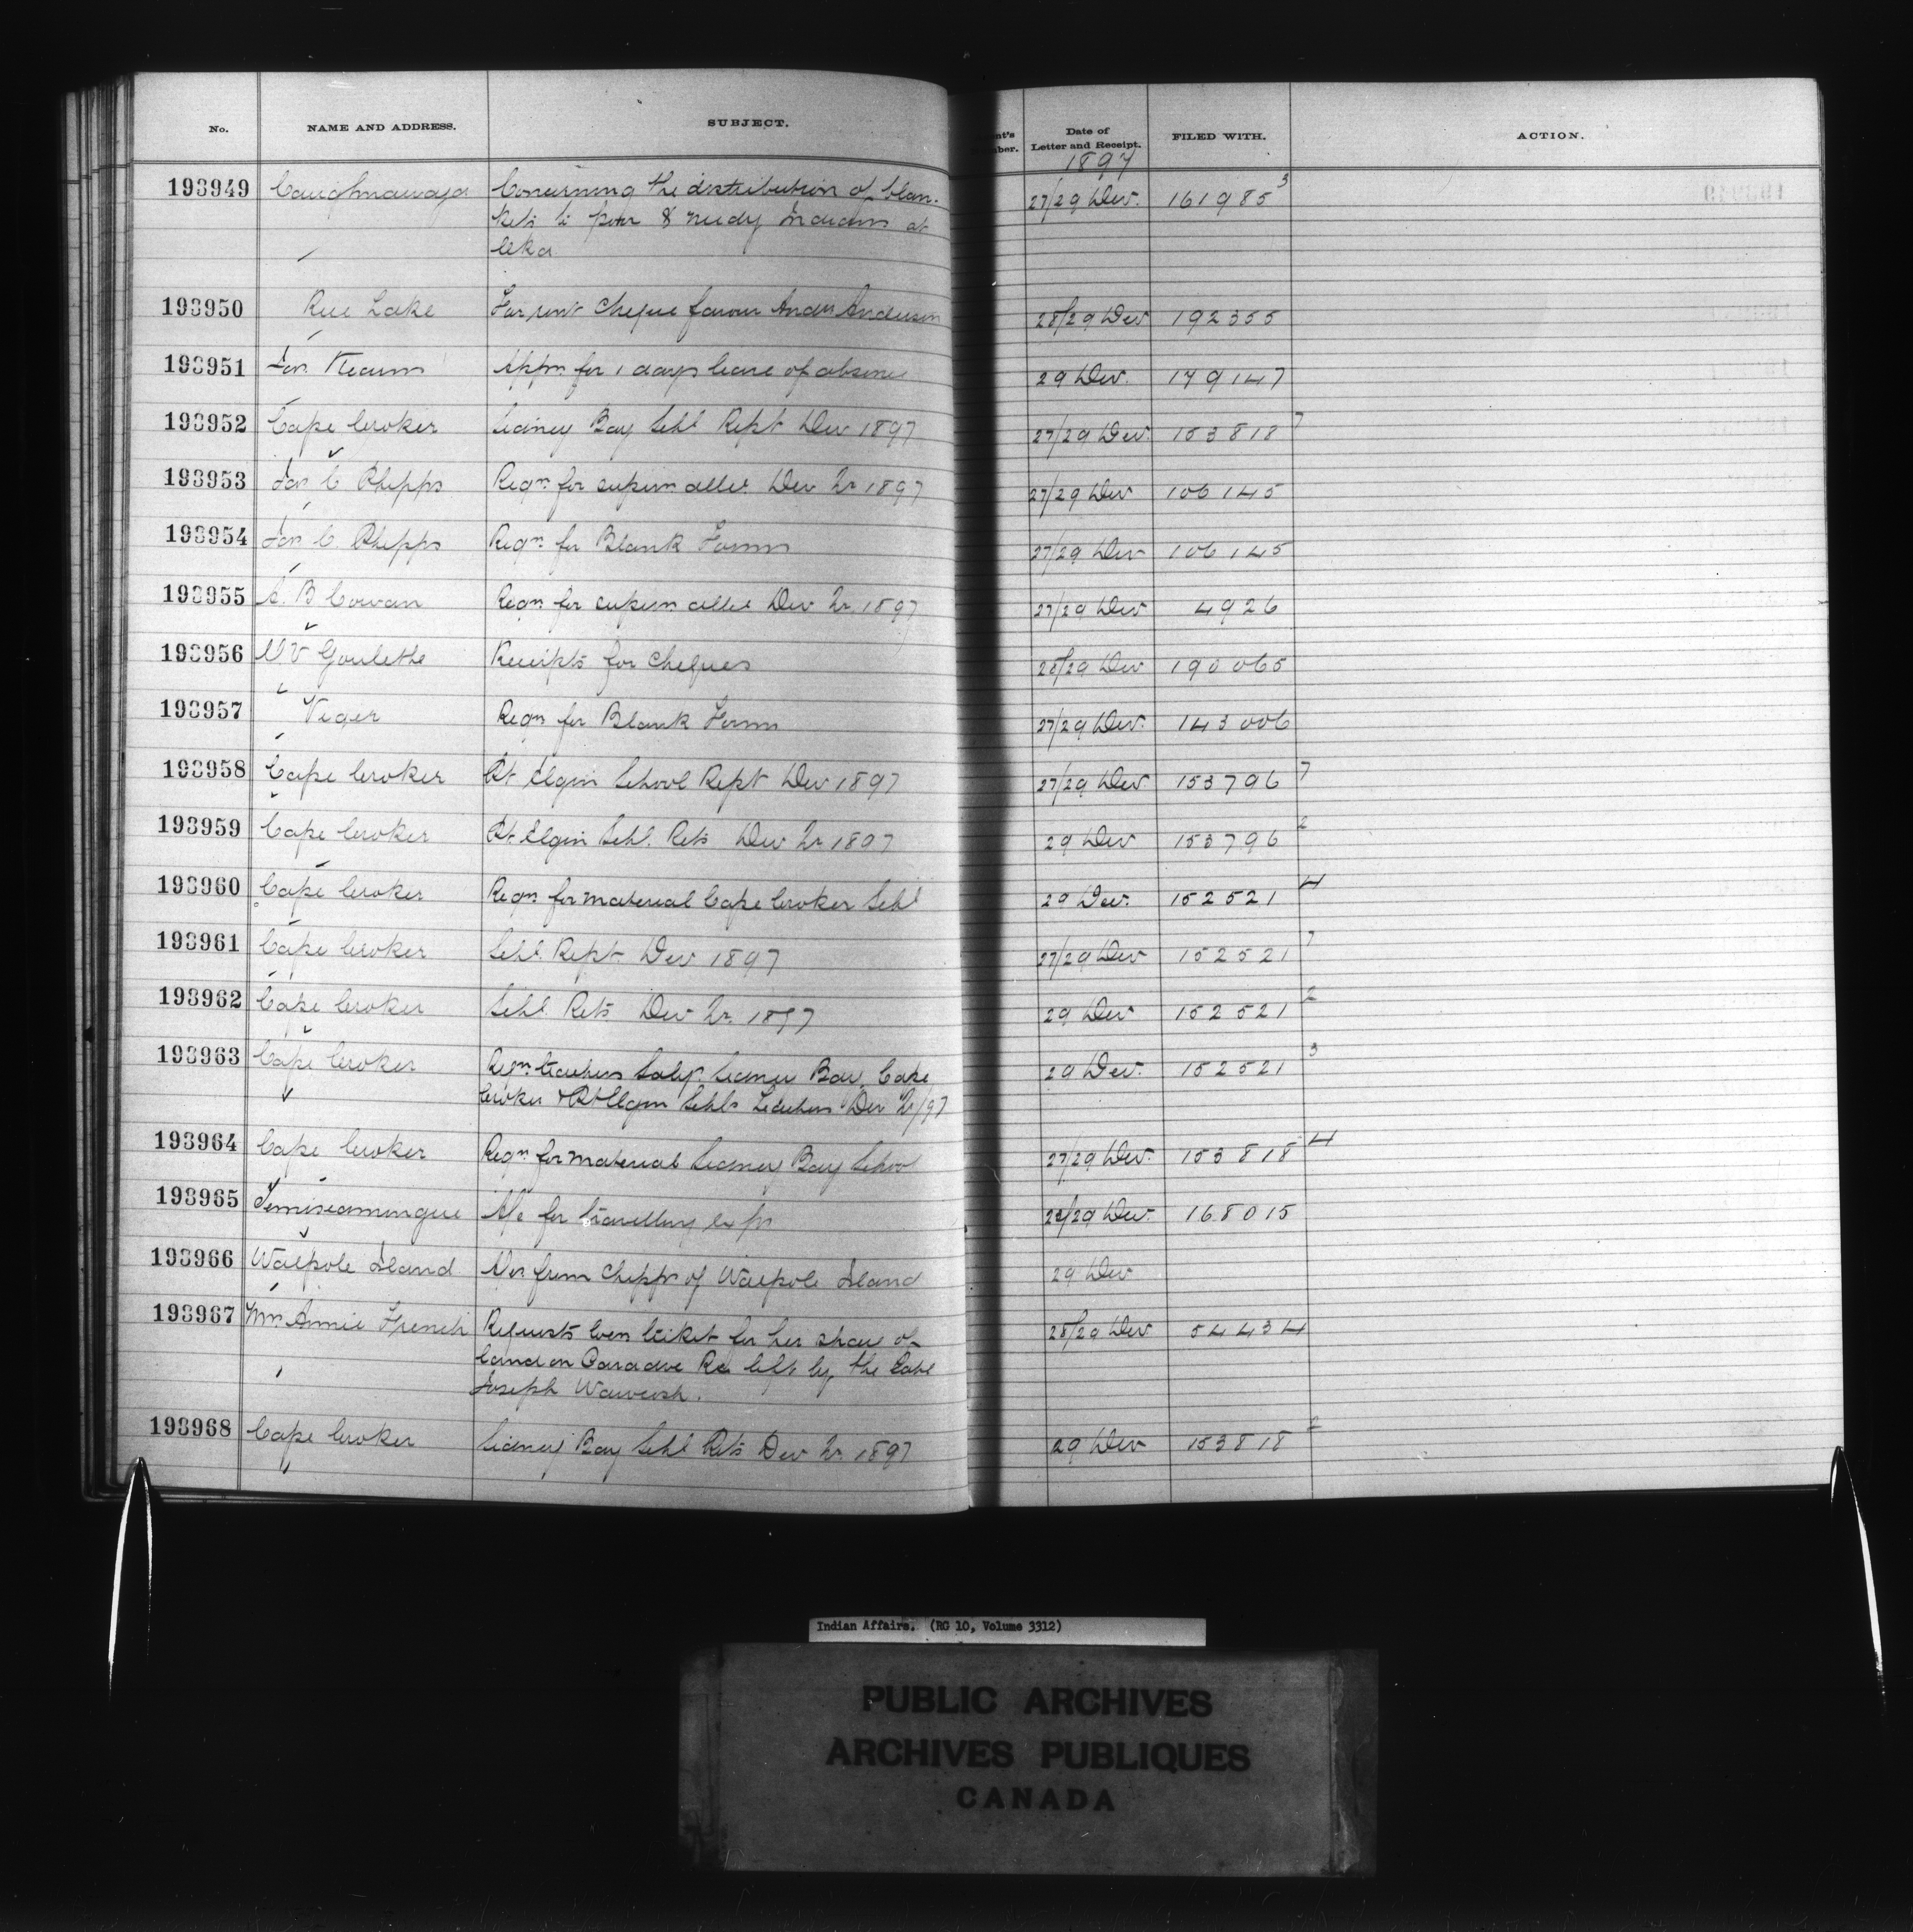 No. NAME AND ADDRESS. SUBJECT. Date of Letter and Receipt. FILED WITH. ACTION.
1897
193949 Caughnawaga Concerning the distribution of blan- 27/29 Dec. 161985 3
kets to poor & needy Indians at
Oka
193950 Rice Lake For rent cheque favour Andw Anderson 28/29 Dec 192355
193951 Jas. Kearns Appn. for 1 days leave of absence 29 Dec. 179147
193952 Cape Croker Sidney Bay Schl Rept Dec 1897 27/29 Dec. 153818 7
193953 Jas. C Phipps Reqn. for supern allce. Dec Qr 1897 27/29 Dec 106145
193954 Jas. C. Phipps Reqn. for Blank Forms 27/29 Dec 106145
193955 A. B Cowan Reqn. for supern allce Dec Qr. 1897 27/29 Dec 4926
193956 Goulette Receipts for cheques 28/29 Dec 190065
193957 Viger Reqn for Blank Forms 27/29 Dec. 143006
193958 Cape Croker Pt Elgin School Rept Dec 1897 27/29 Dec 153796 7
193959 Cape Croker Pt. Elgin Schl. Rets Dec Qr 1897 29 Dec 153796 2
193960 Cape Croker Reqn for material Cape Croker Schl 29 Dec. 152521 4
193961 Cape Croker Schl. Rept. Dec 1897 27/29 Dec 152521 7
193962 Cape Croker Schl. Rets Dec Qr. 1897 29 Dec 152521 2
193963 Cape Croker Reqn. teachers Saly. Sidney Bay, Cape 29 Dec. 152521 3
Croker & Pt Elgin Schls Teachers Dec Qr/97
193964 Cape Croker Reqn. for material Sidney Bay School 27/29 Dec. 153818 4
193965 Temiscamingue A/c for travelling exps 28/29 Dec. 168015
193966 Walpole Island from Chipps of Walpole Island 29 Dec
193967 Mrs. Annie French Requests loca ticket for her share of 28/29 Dec 54434
land on Paradive Re left by the late
Joseph Wawwosh.
193968 Cape Croker Sidney Bay Schl Rets Dec Qr. 1897 29 Dec 153818 2
Indian Affairs. (RG 10, Volume 3312)
PUBLIC ARCHIVES
ARCHIVES PUBLIQUES
CANADA